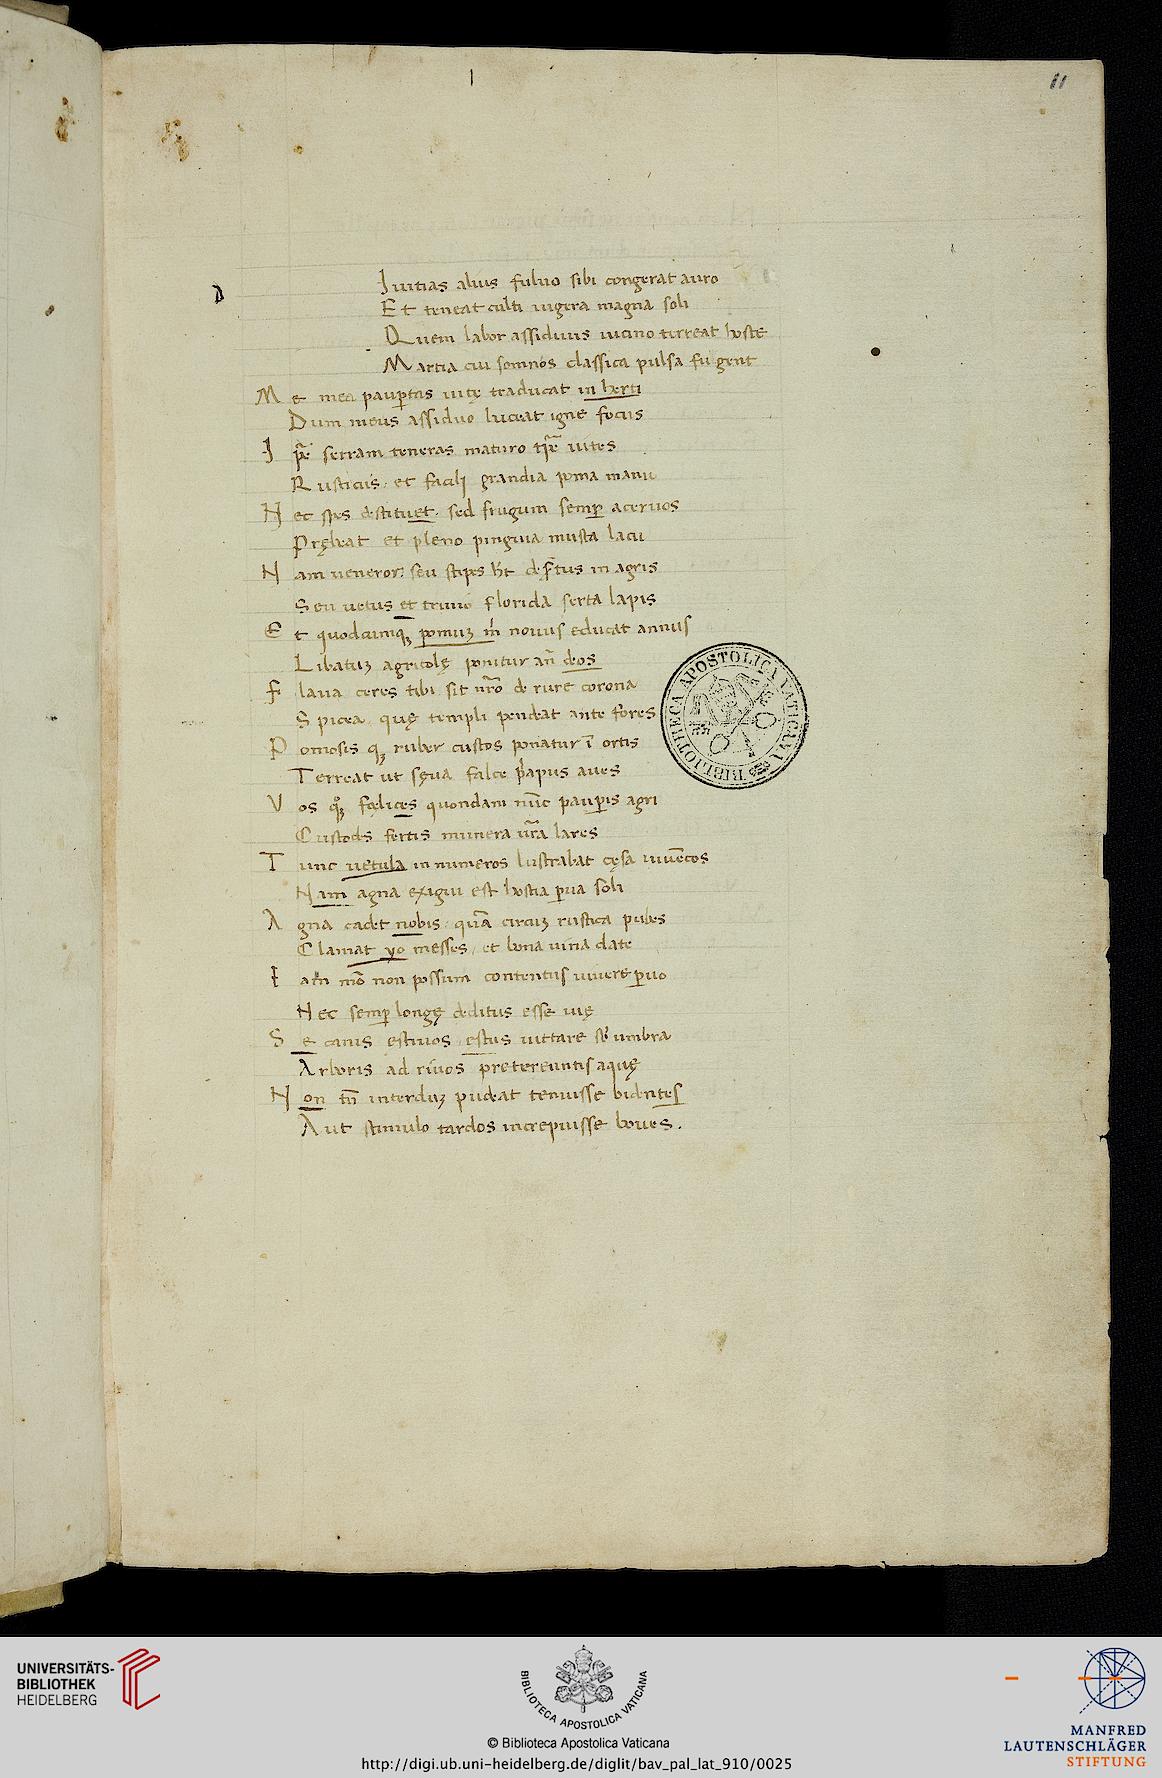 11
D
Iuitias alius fuluo sibi congerat auro
Et teneat culti iugera magna soli
Quem labor assiduus uicino terreat hoste
Martia cui somnos classica pulsa fugent
Me mea paup̄tas uitę traducat in herti
Dum meus assiduo luceat igne focus
Ip̄e serram teneras maturo tp̄re uites
Rusticus et facili grandia poma manu
Nec spes destituet sed frugum semp̄ aceruos
Prębeat et pleno pinguia musta lacu
Nam ueneror seu stipes h̄t dēs̄tus in agris
Seu uetus et triuio florida serta lapis
Et quodcumqꝫ pomuꝫ m̄ nouus educat annus
Libatuꝫ agricolę ponitur an̄ deos
Flaua ceres tibi sit nr̄o de rure corona
Spicea quę templi pendeat ante fores
Pomosis qꝫ ruber custos ponatur ī ortis
Terreat ut sęua falce p̄apus aues
Vos qꝫ fęlices quondam nūc paup̄is agri
Custodes fertis munera ur̄a lares
Tunc uetula innumeros lustrabat cęsa iuuēcos
Nam agna exigui est hostia p̄ua soli
Agna cadet nobis quā circuꝫ rustica pubes
Clamat yo messes et bona uina date
Iam mō non possum contentus uiuere p̄uo
Nec semp̄ longę deditus esse uię
Se canis estiuos estus uittare sb̄ umbra
Arboris ad riuos pretereuntis aquę
Non tn̄ interduꝫ pudeat tenuisse bidentes
Aut stimulo tardos increpuisse boues.
BIBLIOTHECA APOSTOLICA VATICANA
UNIVERSITÄTS-
BIBLIOTHEK
HEIDELBERG
BIBLIOTECA APOSTOLICA VATICANA
© Biblioteca Apostolica Vaticana
http://digi.ub.uni-heidelberg.de/diglit/bav_pal_lat_910/0025
MANFRED
LAUTENSCHLÄGER
STIFTUNG